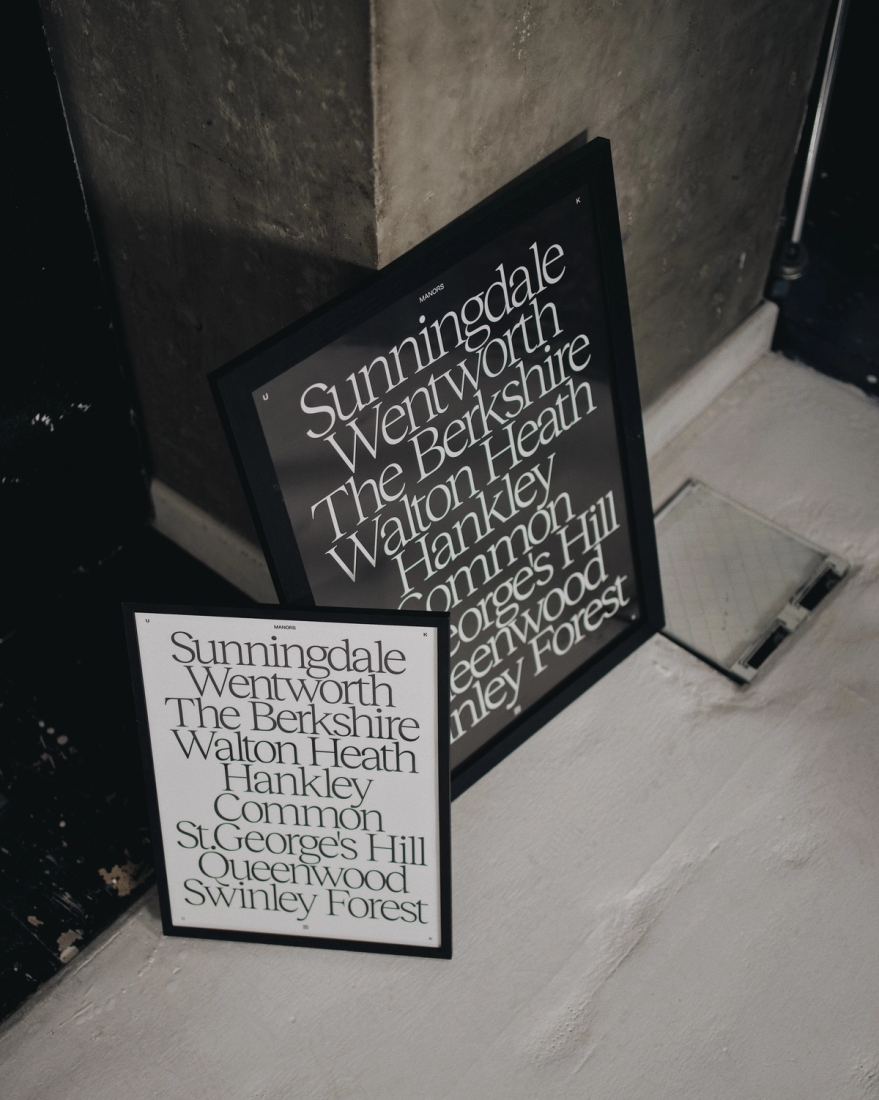 U
MANORS
K
Sunningdale
Wentworth
The Berkshire
Walton Heath
Hankley
Common
eorge's Hill
eenwood
inley Forest
U
MANORS
K
Sunningdale
Wentworth
The Berkshire
Walton Heath
Hankley
Common
St.George's Hill
Queenwood
Swinley Forest